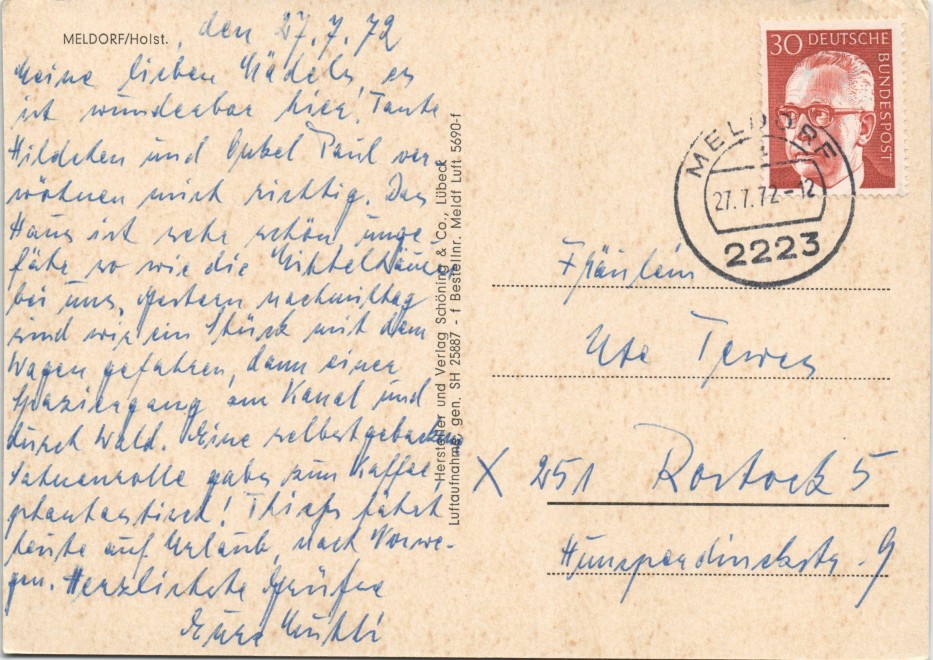 MELDORF/Holst.
, den 27.7.72
Meine lieben Mädels, es
ist wunderbar hier! Tante
Hildchen und Onkel Paul ver-
wöhnen mich richtig. Das
Haus ist sehr schön, unge
fähr so wie die Mittelhäuser
bei uns. Gestern nachmittag
sind wir ein Stück mit dem
Wagen gefahren, dann einen
Spaziergang am Kanal und
durch Wald. Eine selbstgebackene
Sahnenrolle gabs zum Kaffee
phantastisch! Thieß fährt
heute auf Urlaub, nach Norwe-
gen. Herzlichste Grüße
Eure Mutti
Hersteller und Verlag Schöning & Co., Lübeck
Luftaufnahme, gen. SH 25887 - f Bestellnr. Meldf Luft 5690-f
30 DEUTSCHE
BUNDESPOST
MELDORF
27.7.72-12
2223
Fräulein
Ute
X 251 Rostock 5
Humperdinckstr. 9